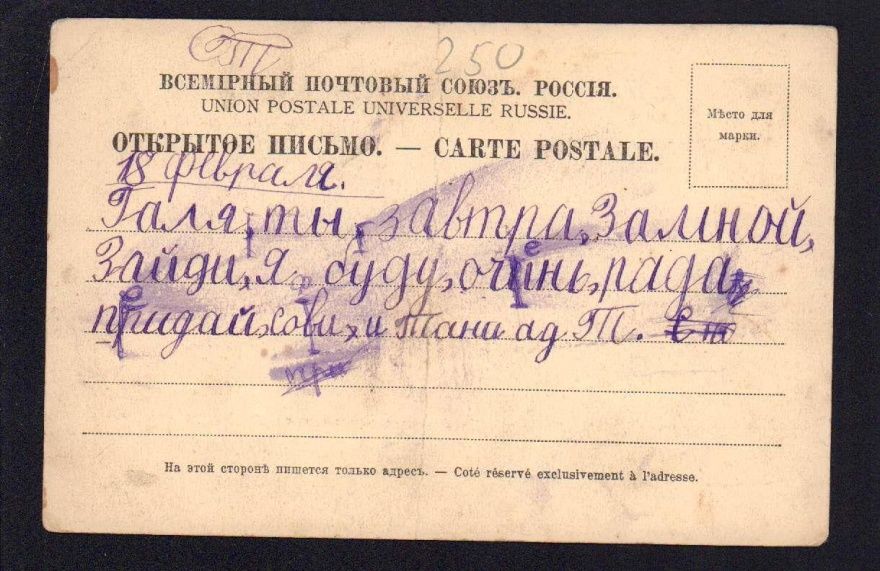 250
ВСЕМІРНЫЙ ПОЧТОВЫЙ СОЮЗЪ. РОССІЯ.
UNION POSTALE UNIVERSELLE RUSSIE.
Мѣсто для
марки.
ОТКРЫТОЕ ПИСЬМО. — CARTE POSTALE.
18 февраля.
Галя, ты, завтра, За мной,
Зайди, я, буду, очинь, рада
придай, сови, и Тани ад Т.
На этой сторонѣ пишется только адресъ. — Coté réservé exclusivement à l'adresse.